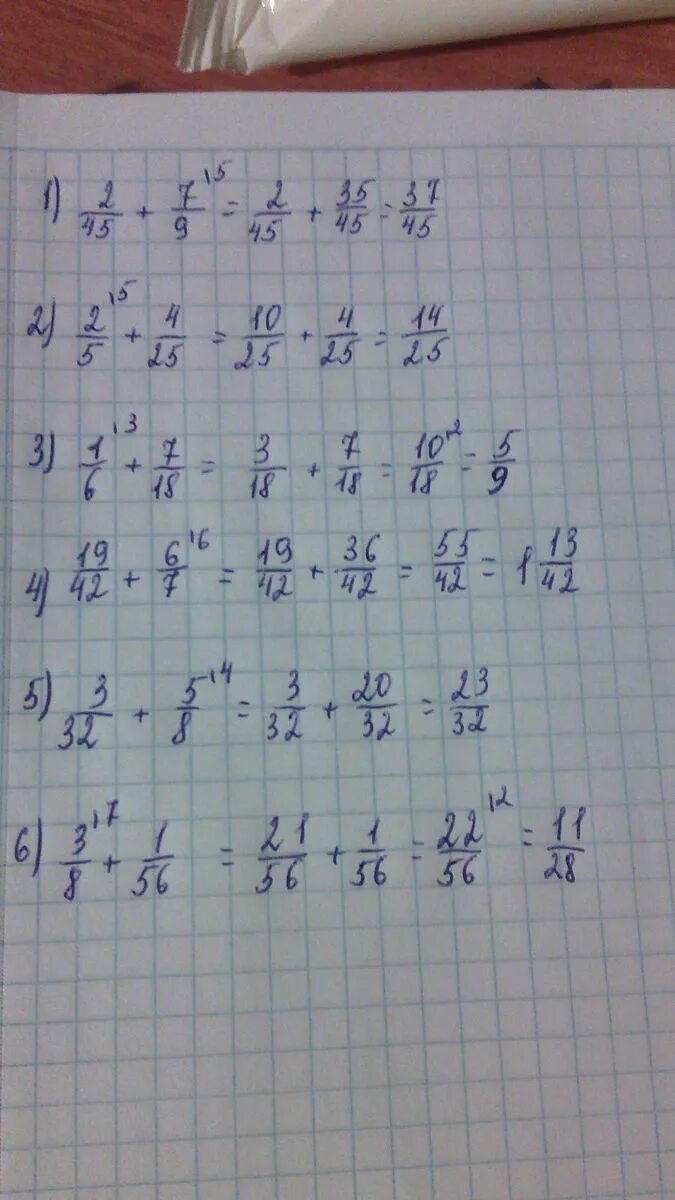 1) 2/45 + 7/9 \5 = 2/45 + 35/45 = 37/45
2) 2/5 \5 + 4/25 = 10/25 + 4/25 = 14/25
3) 1/6 \3 + 7/18 = 3/18 + 7/18 = 10/18 \2 = 5/9
4) 19/42 + 6/7 \6 = 19/42 + 36/42 = 55/42 = 1 13/42
5) 3/32 + 5/8 \4 = 3/32 + 20/32 = 23/32
6) 3/8 \7 + 1/56 = 21/56 + 1/56 = 22/56 \2 = 11/28